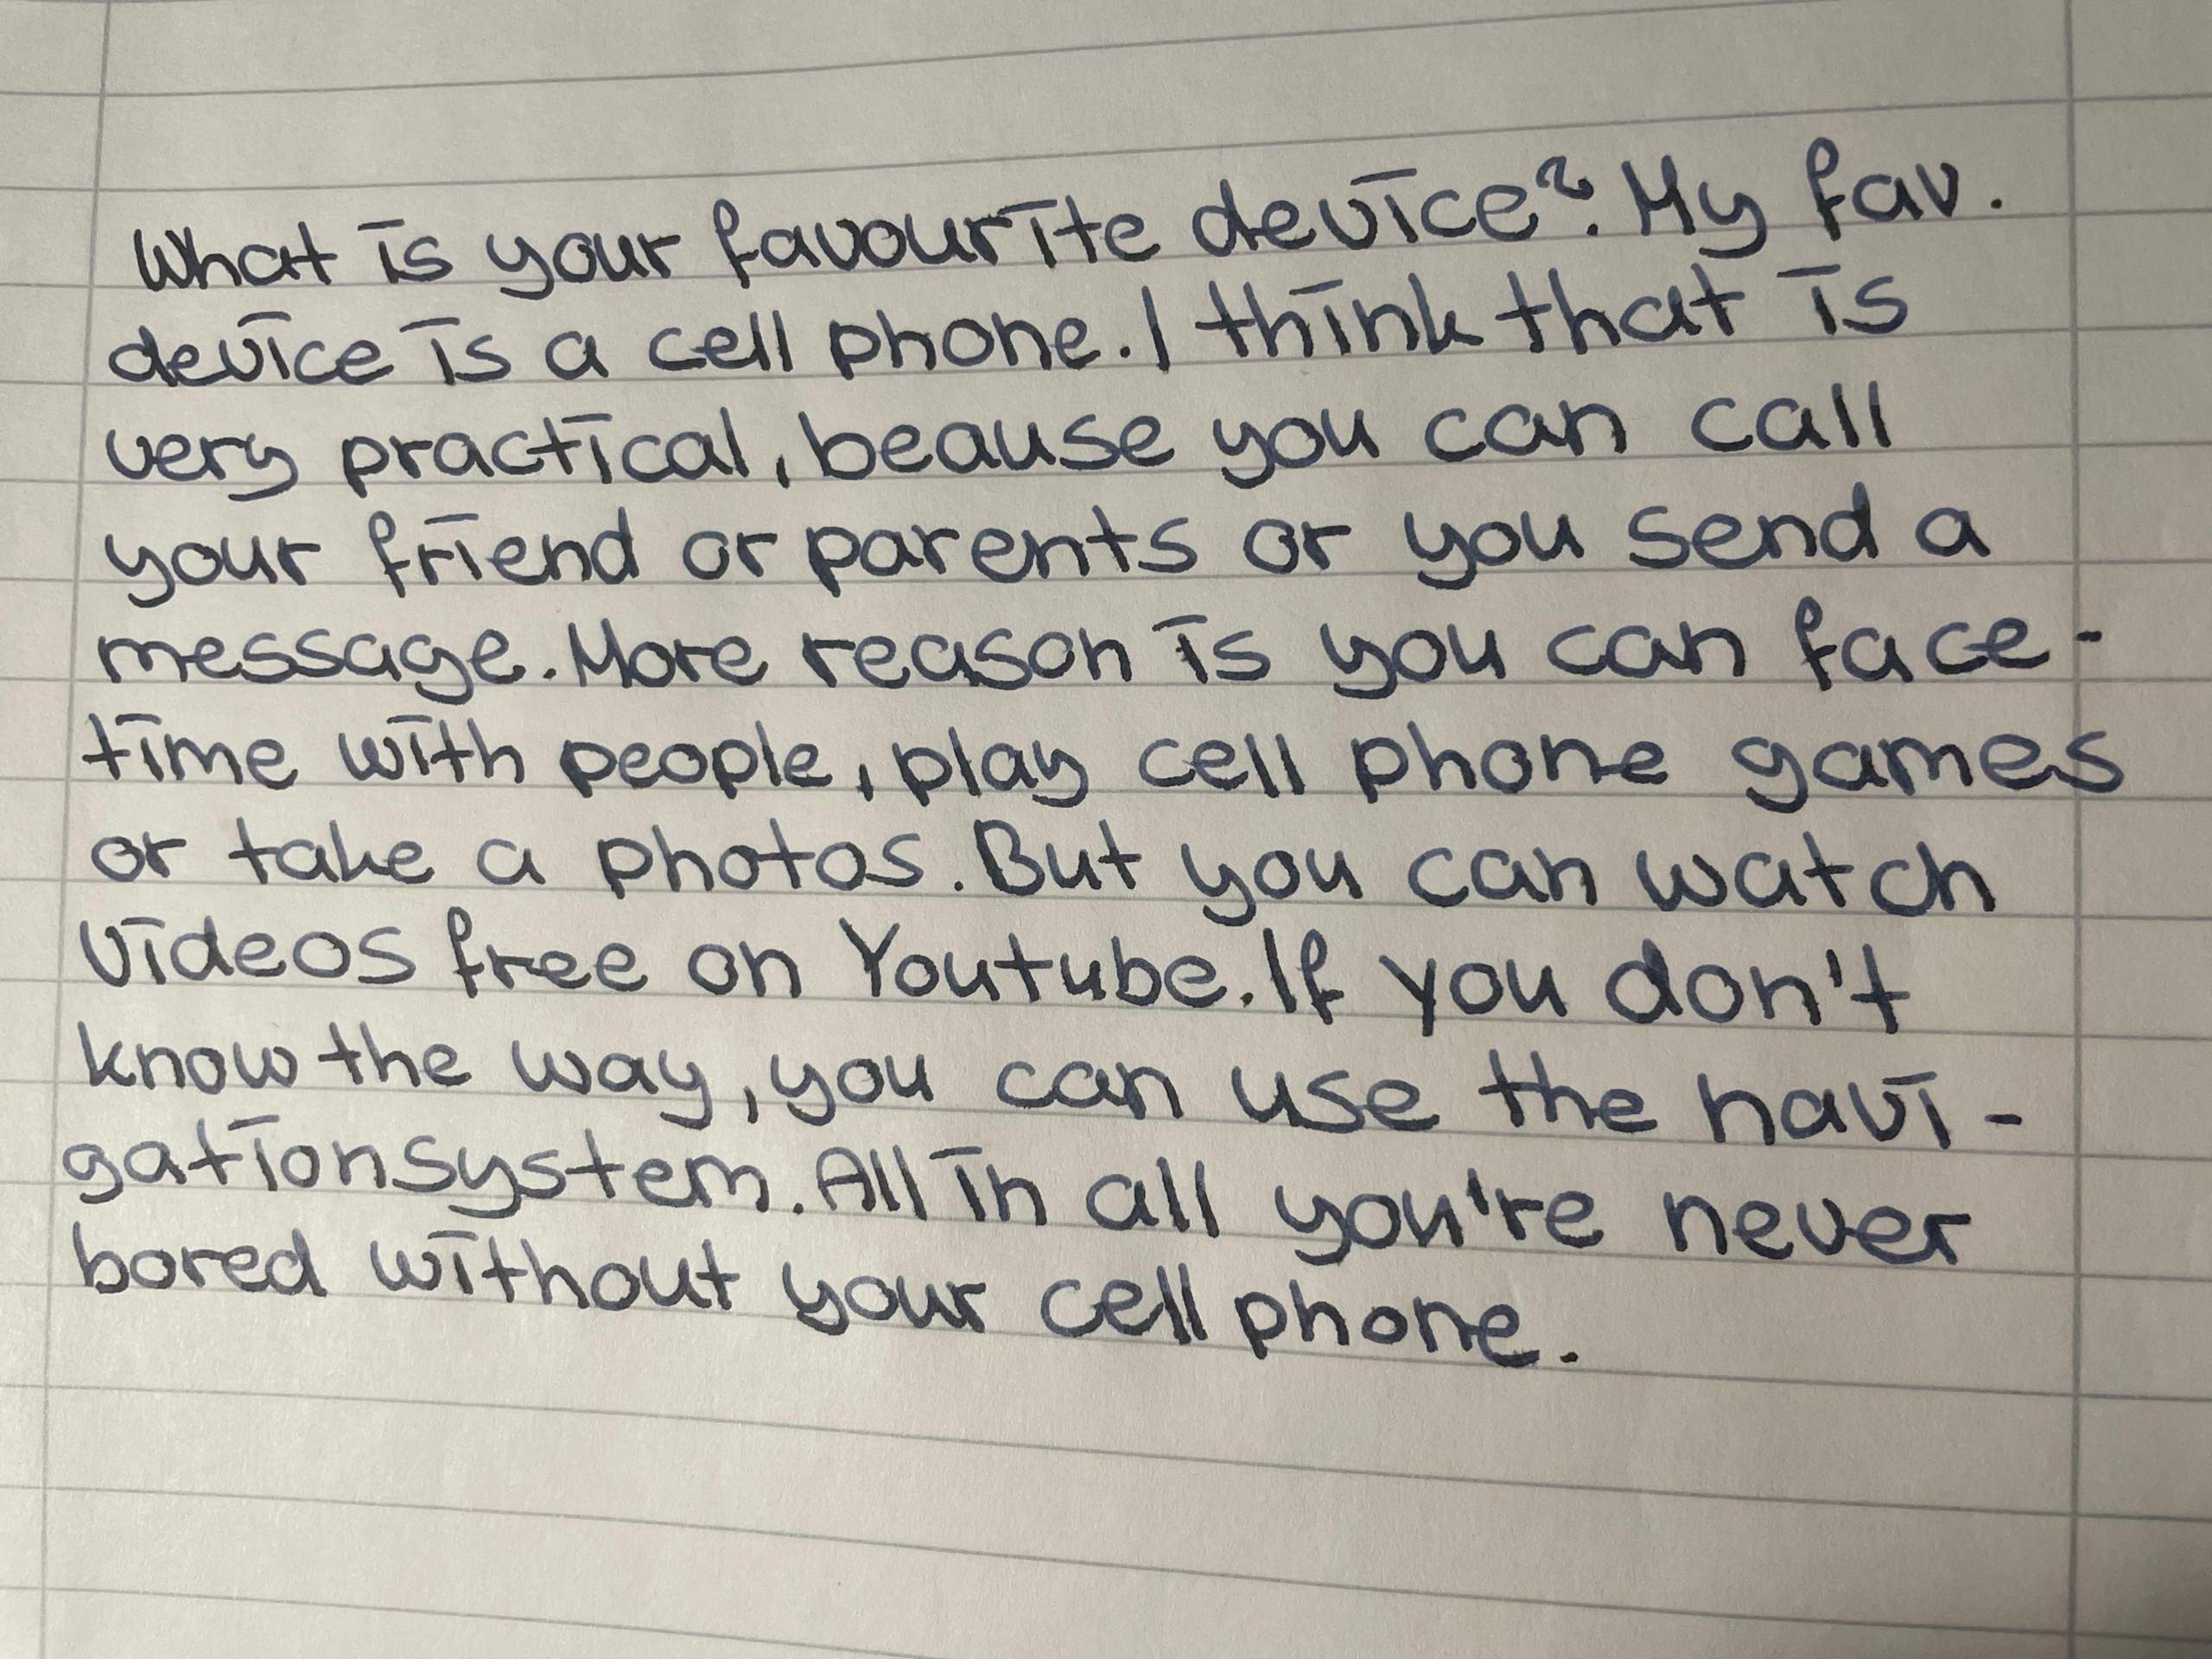 What is your favourite device? My fav.
device is a cell phone. I think that is
very practical, beause you can call
your friend or parents or you send a
message. More reason is you can face-
time with people, play cell phone games
or take a photos. But you can watch
videos free on Youtube. If you don't
know the way, you can use the navi-
gationsystem. All in all you're never
bored without your cell phone.